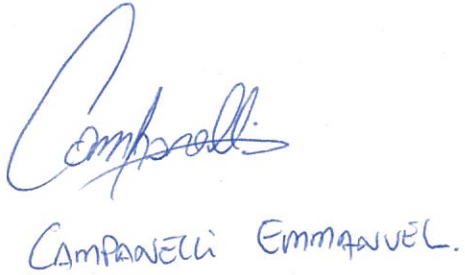 Campanelli
CAMPANELLi EMMANUEL.